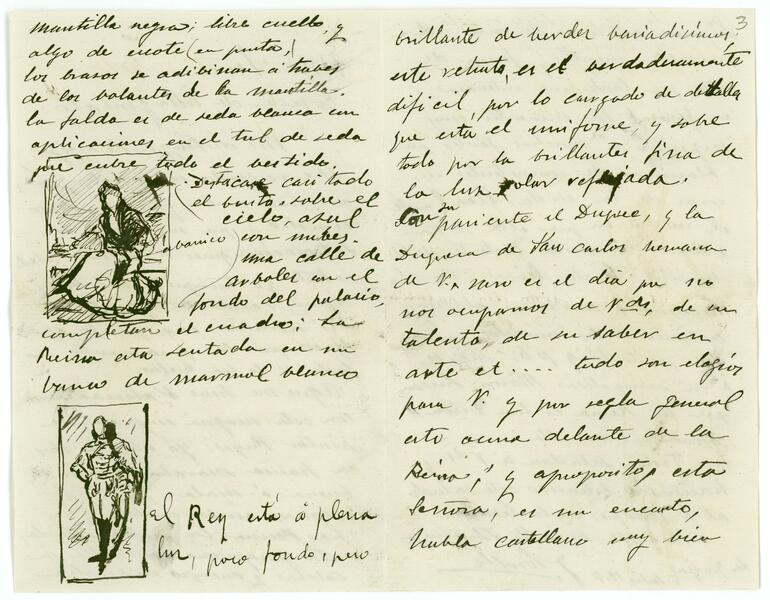 mantilla negra; libre cuello, y
algo de escote (en punta,)
los brasos se adibinan á traves
de los bolantes de la mantilla.
la falda es de seda blanca con
aplicaciones en el tul de seda
que cubre todo el vestido.
Destacase casi todo
el busto, sobre el
cielo, azul
con nubes.
abanico
una calle de
arboles con el
fondo del palacio,
completan el cuadro; La
Reina esta sentada en un
banco de marmol blanco
El Rey está á plena
luz, poco fondo, pero
3
brillante de verdes bariadisimos.
este retrato, es el verdaderamente
dificil, por lo cargado de detalla
que está el uniforme, y sobre
todo por la brillantes, fina de
la luz solar reflejada.
Con su pariente el Duque, y la
Duquesa de San Carlos hermana
de V. raro es el dia que no
nos ocupamos de Vds, de su
talento, de su saber en
arte et .... todo son elogios
para V. y por regla general
esto ocurre delante de la
Reina, y aproposito, esta
Señora, es un encanto,
habla castellano muy bien